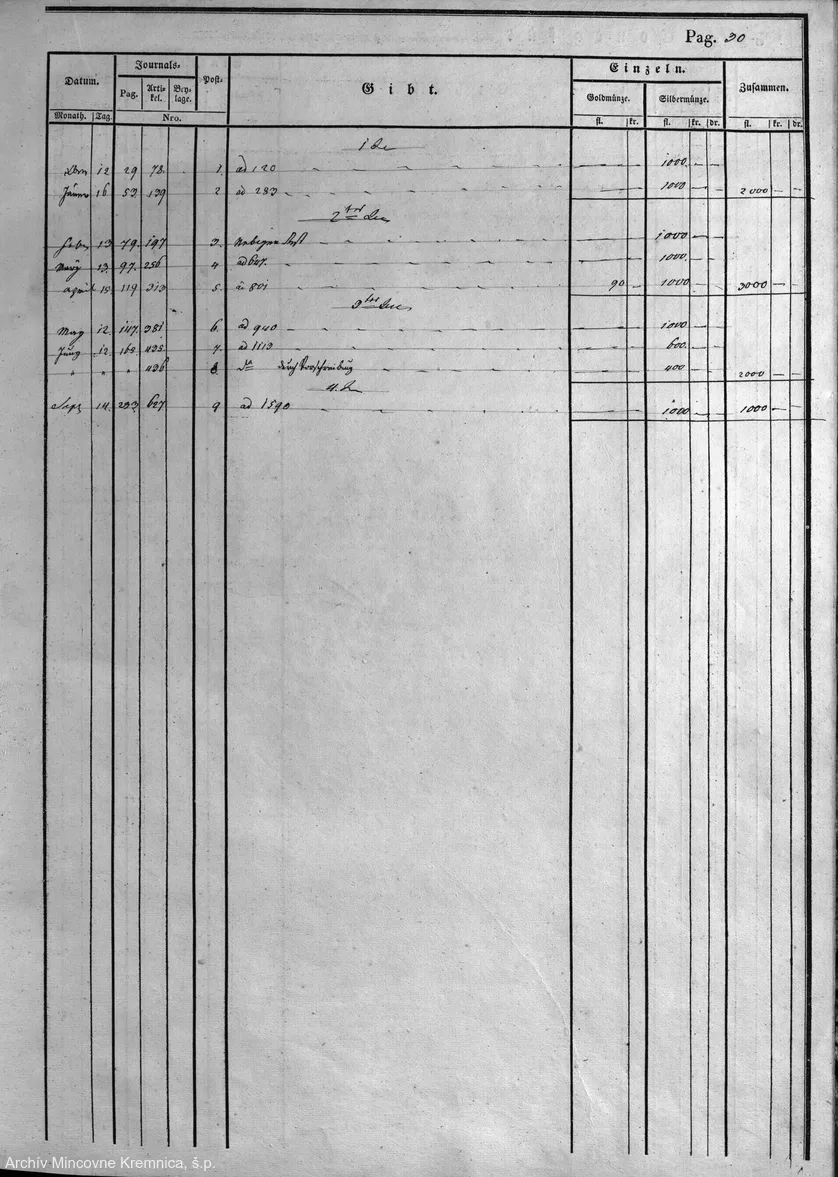 Pag. 30
Datum. Journals- Post- Gibt. Einzeln. Zusammen.
Pag. Arti-kel. Bey-lage. Goldmünze. Silbermünze.
Monath. Tag. Nro. fl. kr. fl. kr. dr. fl. kr. dr.
12 29 78. 1. ad 120 1000 — —
Jänner 16 53. 139 2 ad 283 1000 — — 2000 — —
2
13 79. 197 3. 1000 — —
13. 97. 256 4. ad 647. 1000 — —
April 15. 119 313 5. 801 90 — 1000 — — 3000 — —
3
May 12. 147. 381 6. ad 940 1000 — —
Juny 12. 168. 435. 7. ad 1113 600 — —
" " " 436 8. durch 400 — — 2000 — —
4.
Sept 14. 233. 627 9 ad 1590 1000 — — 1000 — —
Archív Mincovne Kremnica, š.p.